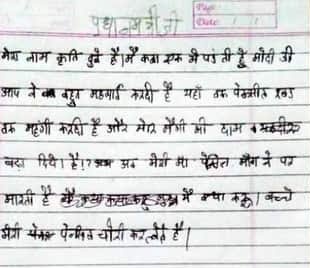 Page
Date
प्रधानमत्री जी
मेरा नाम कृति दुबे है। मै कक्षा एक मे पडती हूँ मोदी जी
आप ने बहुत महगाई करदी है यहाँ तक पेनसील रबड
तक महंगी करदी है और मेरि मैगी की दाम
बढा दिये। है!? अब मेरी मा पेंसिल मांगने पर
मारती है मै क्या करू। बच्चे
मेरी पेनसिल चोरी कर लेते है।